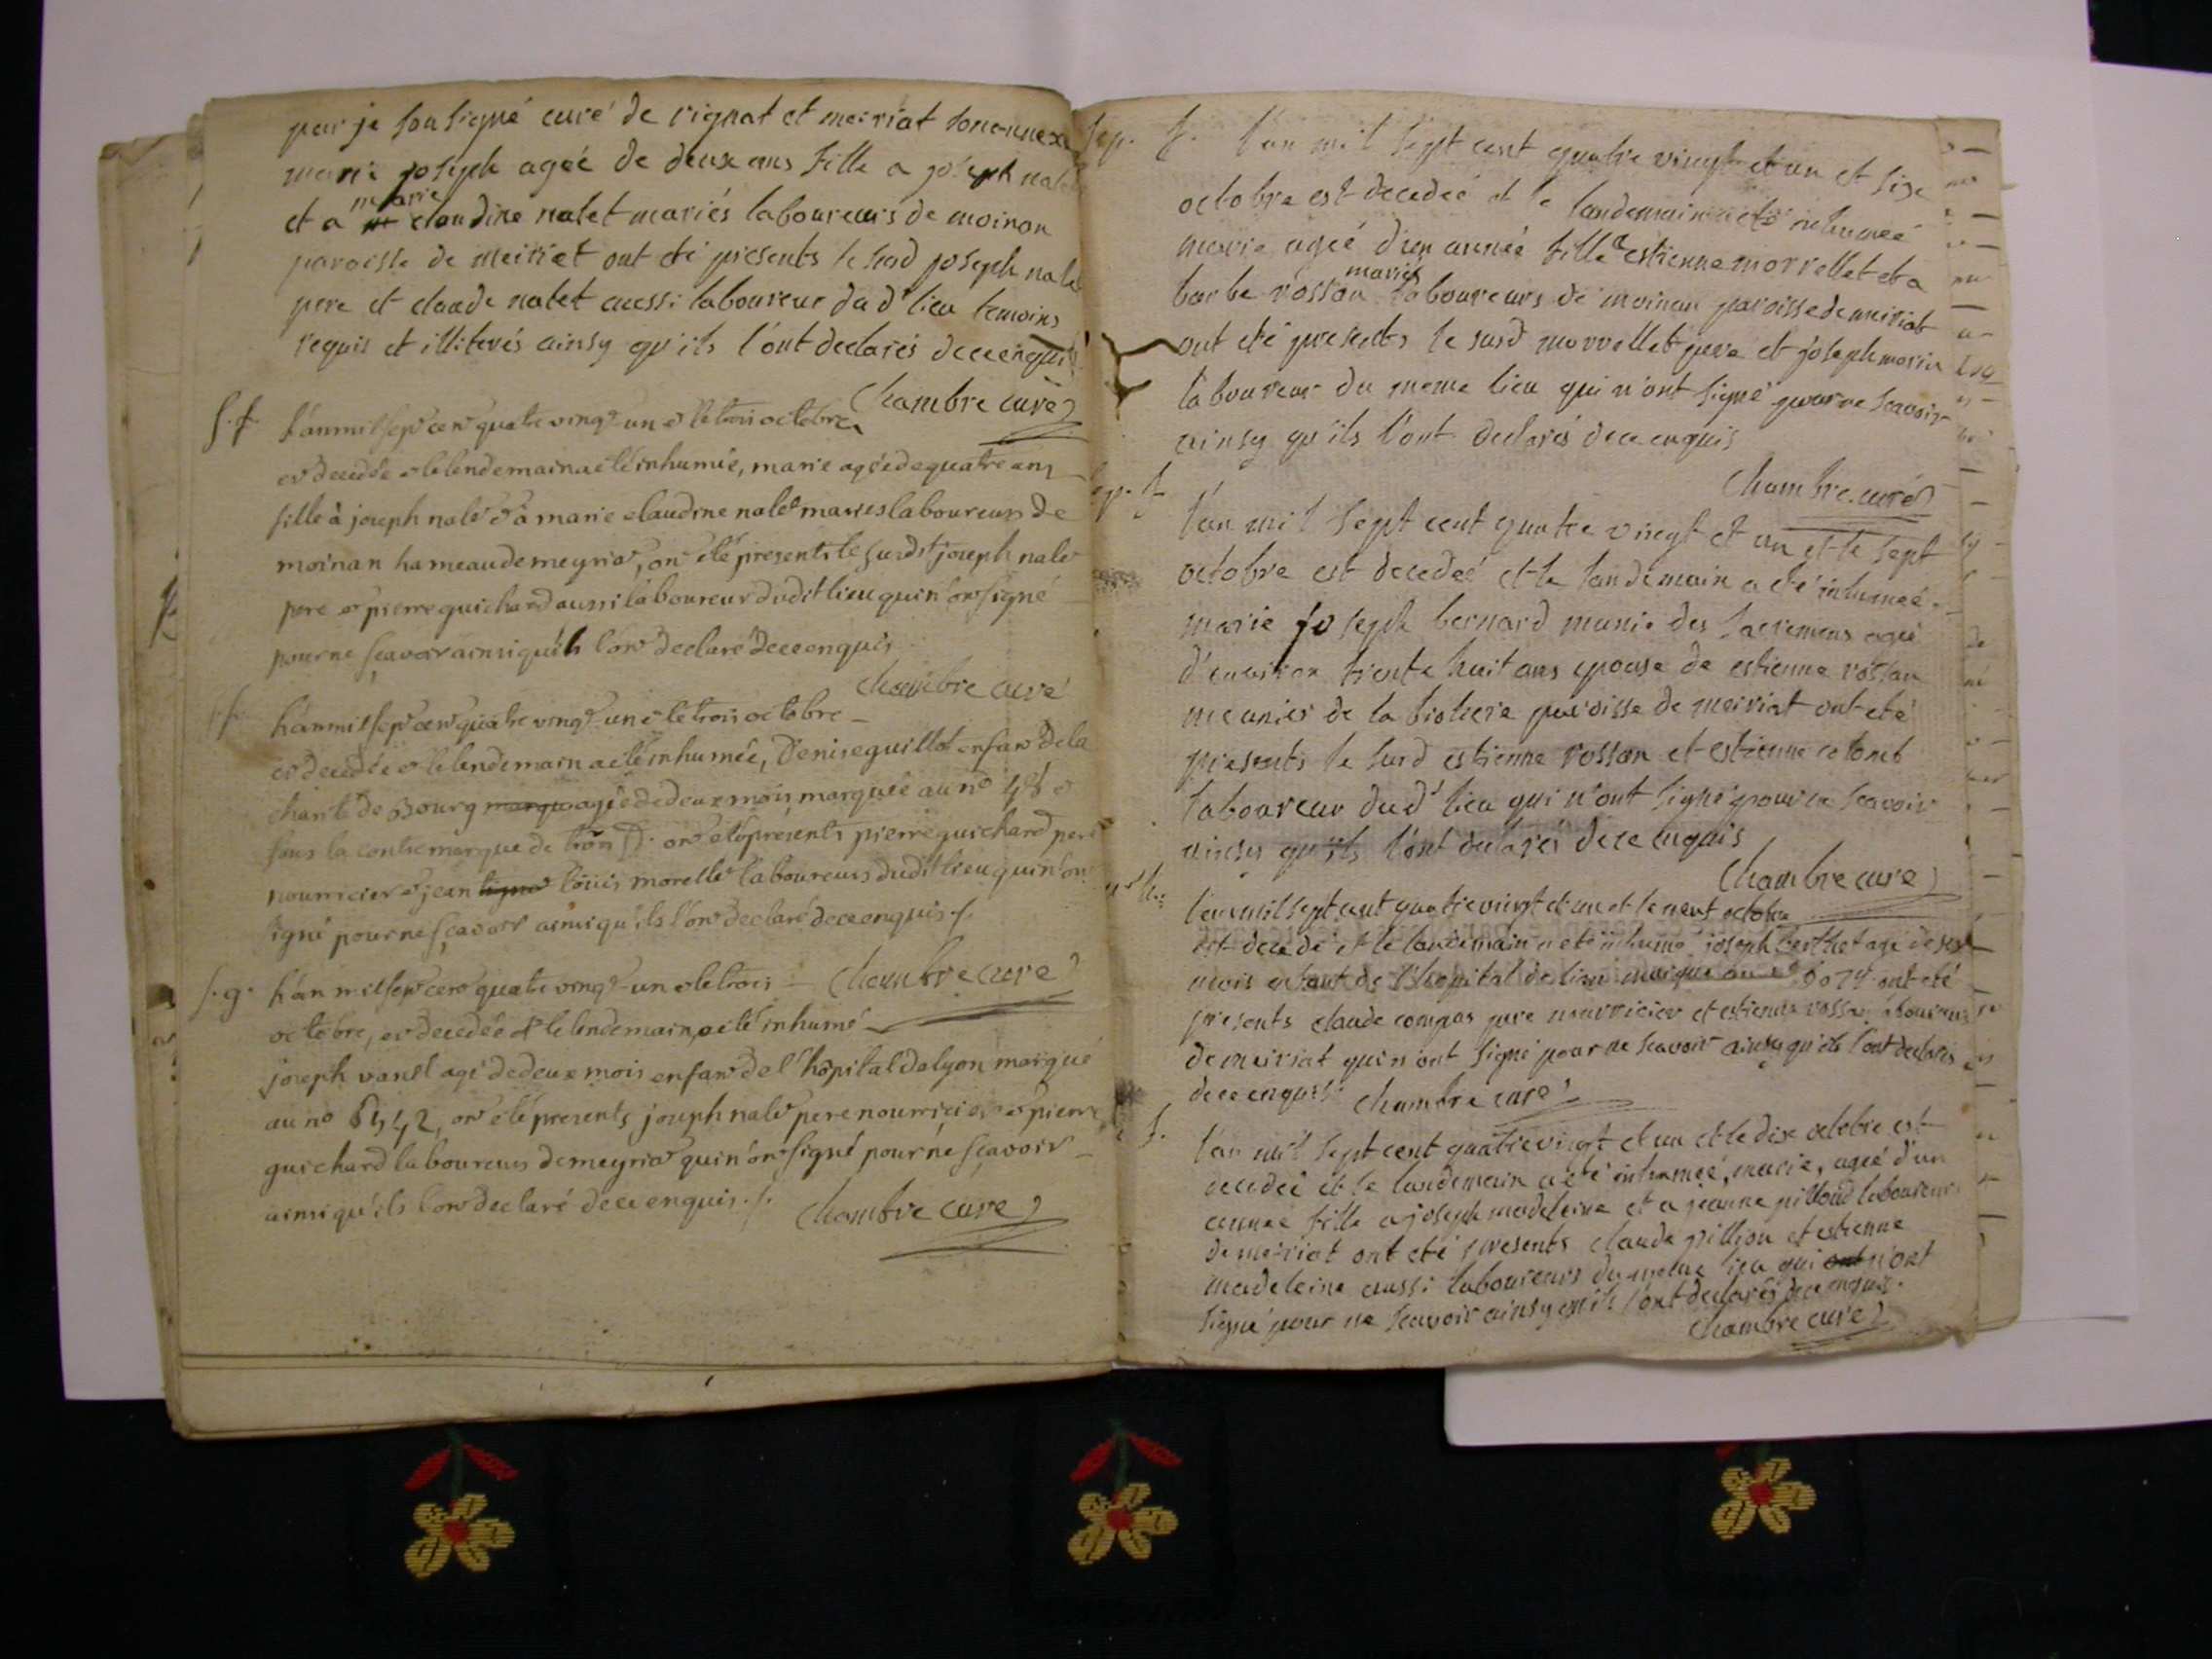 par je sousigné curé de rignat et meiriat son annexe
marie joseph ageé de deux ans fille a joseph nalet
et a marie claudine nalet mariés laboureurs de moinan
paroisse de meiriat ont été presents le susd joseph nalet
pere et claude nalet aussi laboureur dud' lieu temoins
requis et illiterés ainsy qu'ils l'ont declarés de ce enquis
Chambre curé
s. f. l'an mil sept cent quatre vingt un et le trois octobre
est decedée et le lendemain a été inhumée, marie agée de quatre ans
fille à joseph nalet et à marie claudine nalet mariés laboureurs de
moinan hameau de meyriat, ont été presents le susdt joseph nalet
pere et pierre guichard aussi laboureur dudit lieu qui n'ont signé
pour ne sçavoir ainsi qu'ils l'ont declaré de ce enquis
chambre curé
s. f. l'an mil sept cent quatre vingt un et le trois octobre
est decedée et le lendemain a été inhumée, Denise guillot enfant de la
charité de Bourg marqu agée de deux mois marquée au no 48 et
sous la contremarque de D. ont été présents pierre guichard pere
nourricier et jean signé loüis morellet laboureurs dudit lieu qui n'ont
signé pour ne sçavoir ainsi qu'ils l'ont declaré de ce enquis ./.
Chambre curé
s. g. l'an mil sept cent quatre vingt un et le trois
octobre, est decedée et le lendemain a été inhumé
joseph vanel agé de deux mois enfant de l'hôpital de lyon marqué
au no 8442, ont été presents joseph nalet pere nourricier et pierre
guichard laboureurs de meyriat qui n'ont signé pour ne sçavoir
ainsi qu'ils l'ont declaré de ce enquis ./.
Chambre curé
sep. f. l'an mil sept cent quatre vingt et un et le six
octobre est decedeé et le landemain a eté inhumeé
marie ageé d'un anneé fille a estienne morrellet et a
barbe rosson mariés laboureurs de moinan paroisse de meiriat
ont eté presents le susd morrellet pere et joseph morin
laboureur du meme lieu qui n'ont signé pour ne scavoir
ainsy qu'ils l'ont declarés de ce enquis
Chambre curé
sep. f. l'an mil sept cent quatre vingt et un et le sept
octobre est decedeé et le landemain a eté inhumeé
marie joseph bernard munie des sacremens ageé
d'environ trente huit ans epouse de estienne rosson
meunier de la paroisse de meiriat ont eté
presents le susd estienne rosson et estienne colomb
laboureur dud' lieu qui n'ont signé pour ne scavoir
ainsy qu'ils l'ont declarés de ce enquis
Chambre curé
l'an mil sept cent quatre vingt et un et le neuf octobre
est decedé et le landemain a eté inhumé joseph berthet agé de sept
mois enfant de l'hopital de lion marqué au no 9074 ont eté
presents claude compas pere nourricier et estienne rosson laboureurs
de meiriat qui n'ont signé pour ne scavoir ainsy qu'ils l'ont declarés
de ce enquis. chambre curé
f. l'an mil sept cent quatre vingt et un et le dix octobre est
decedeé et le landemain a eté inhumeé, marie, ageé d'un
annee fille a joseph madeleine et a jeanne pillond laboureurs
de meiriat ont eté presents claude pillion et estienne
madeleine aussi laboureurs du meme lieu qui ont n'ont
signé pour ne scavoir ainsy qu'ils l'ont declarés de ce enquis.
Chambre curé